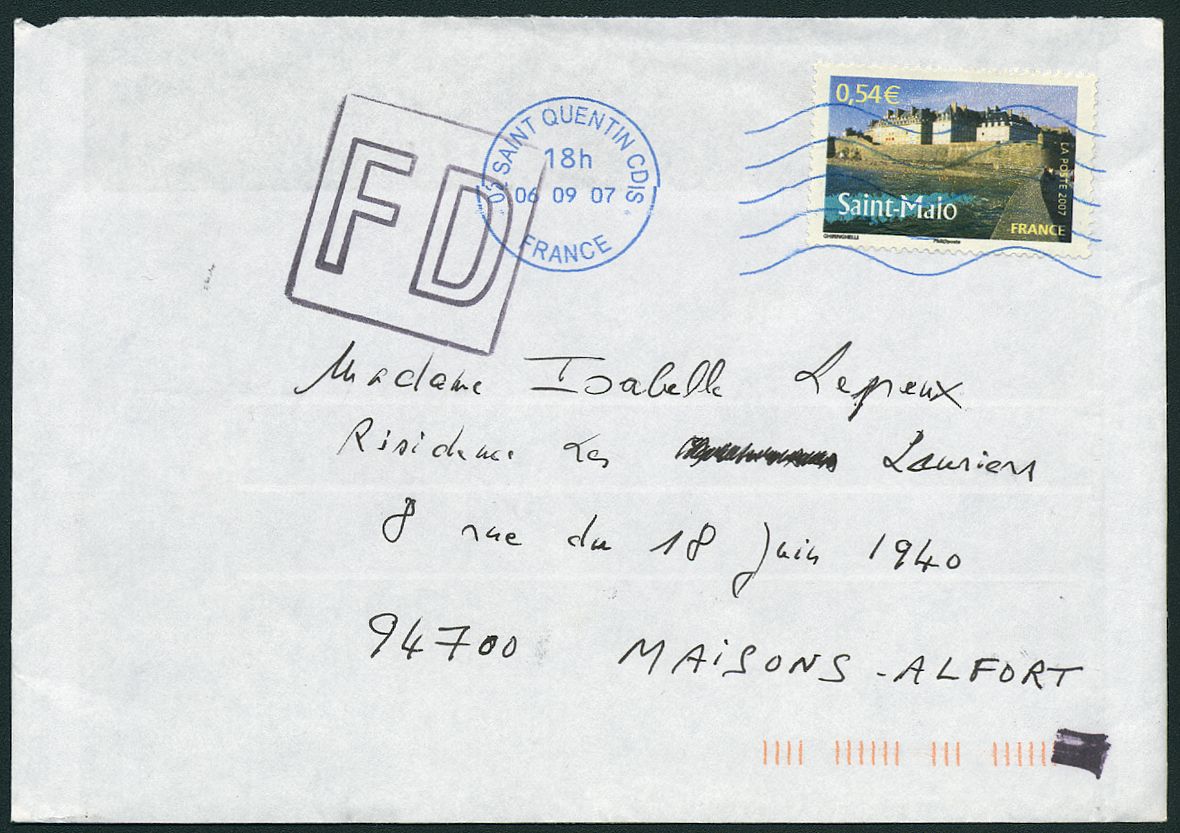 FD
02 SAINT QUENTIN CDIS
18h
06 09 07
FRANCE
0,54€
LA POSTE 2007
Saint-Malo
FRANCE
GHIRINGHELLI
Phil@poste
Madame Isabelle Lepeux
Résidence Les Lauriers
8 rue du 18 Juin 1940
94700 MAISONS-ALFORT